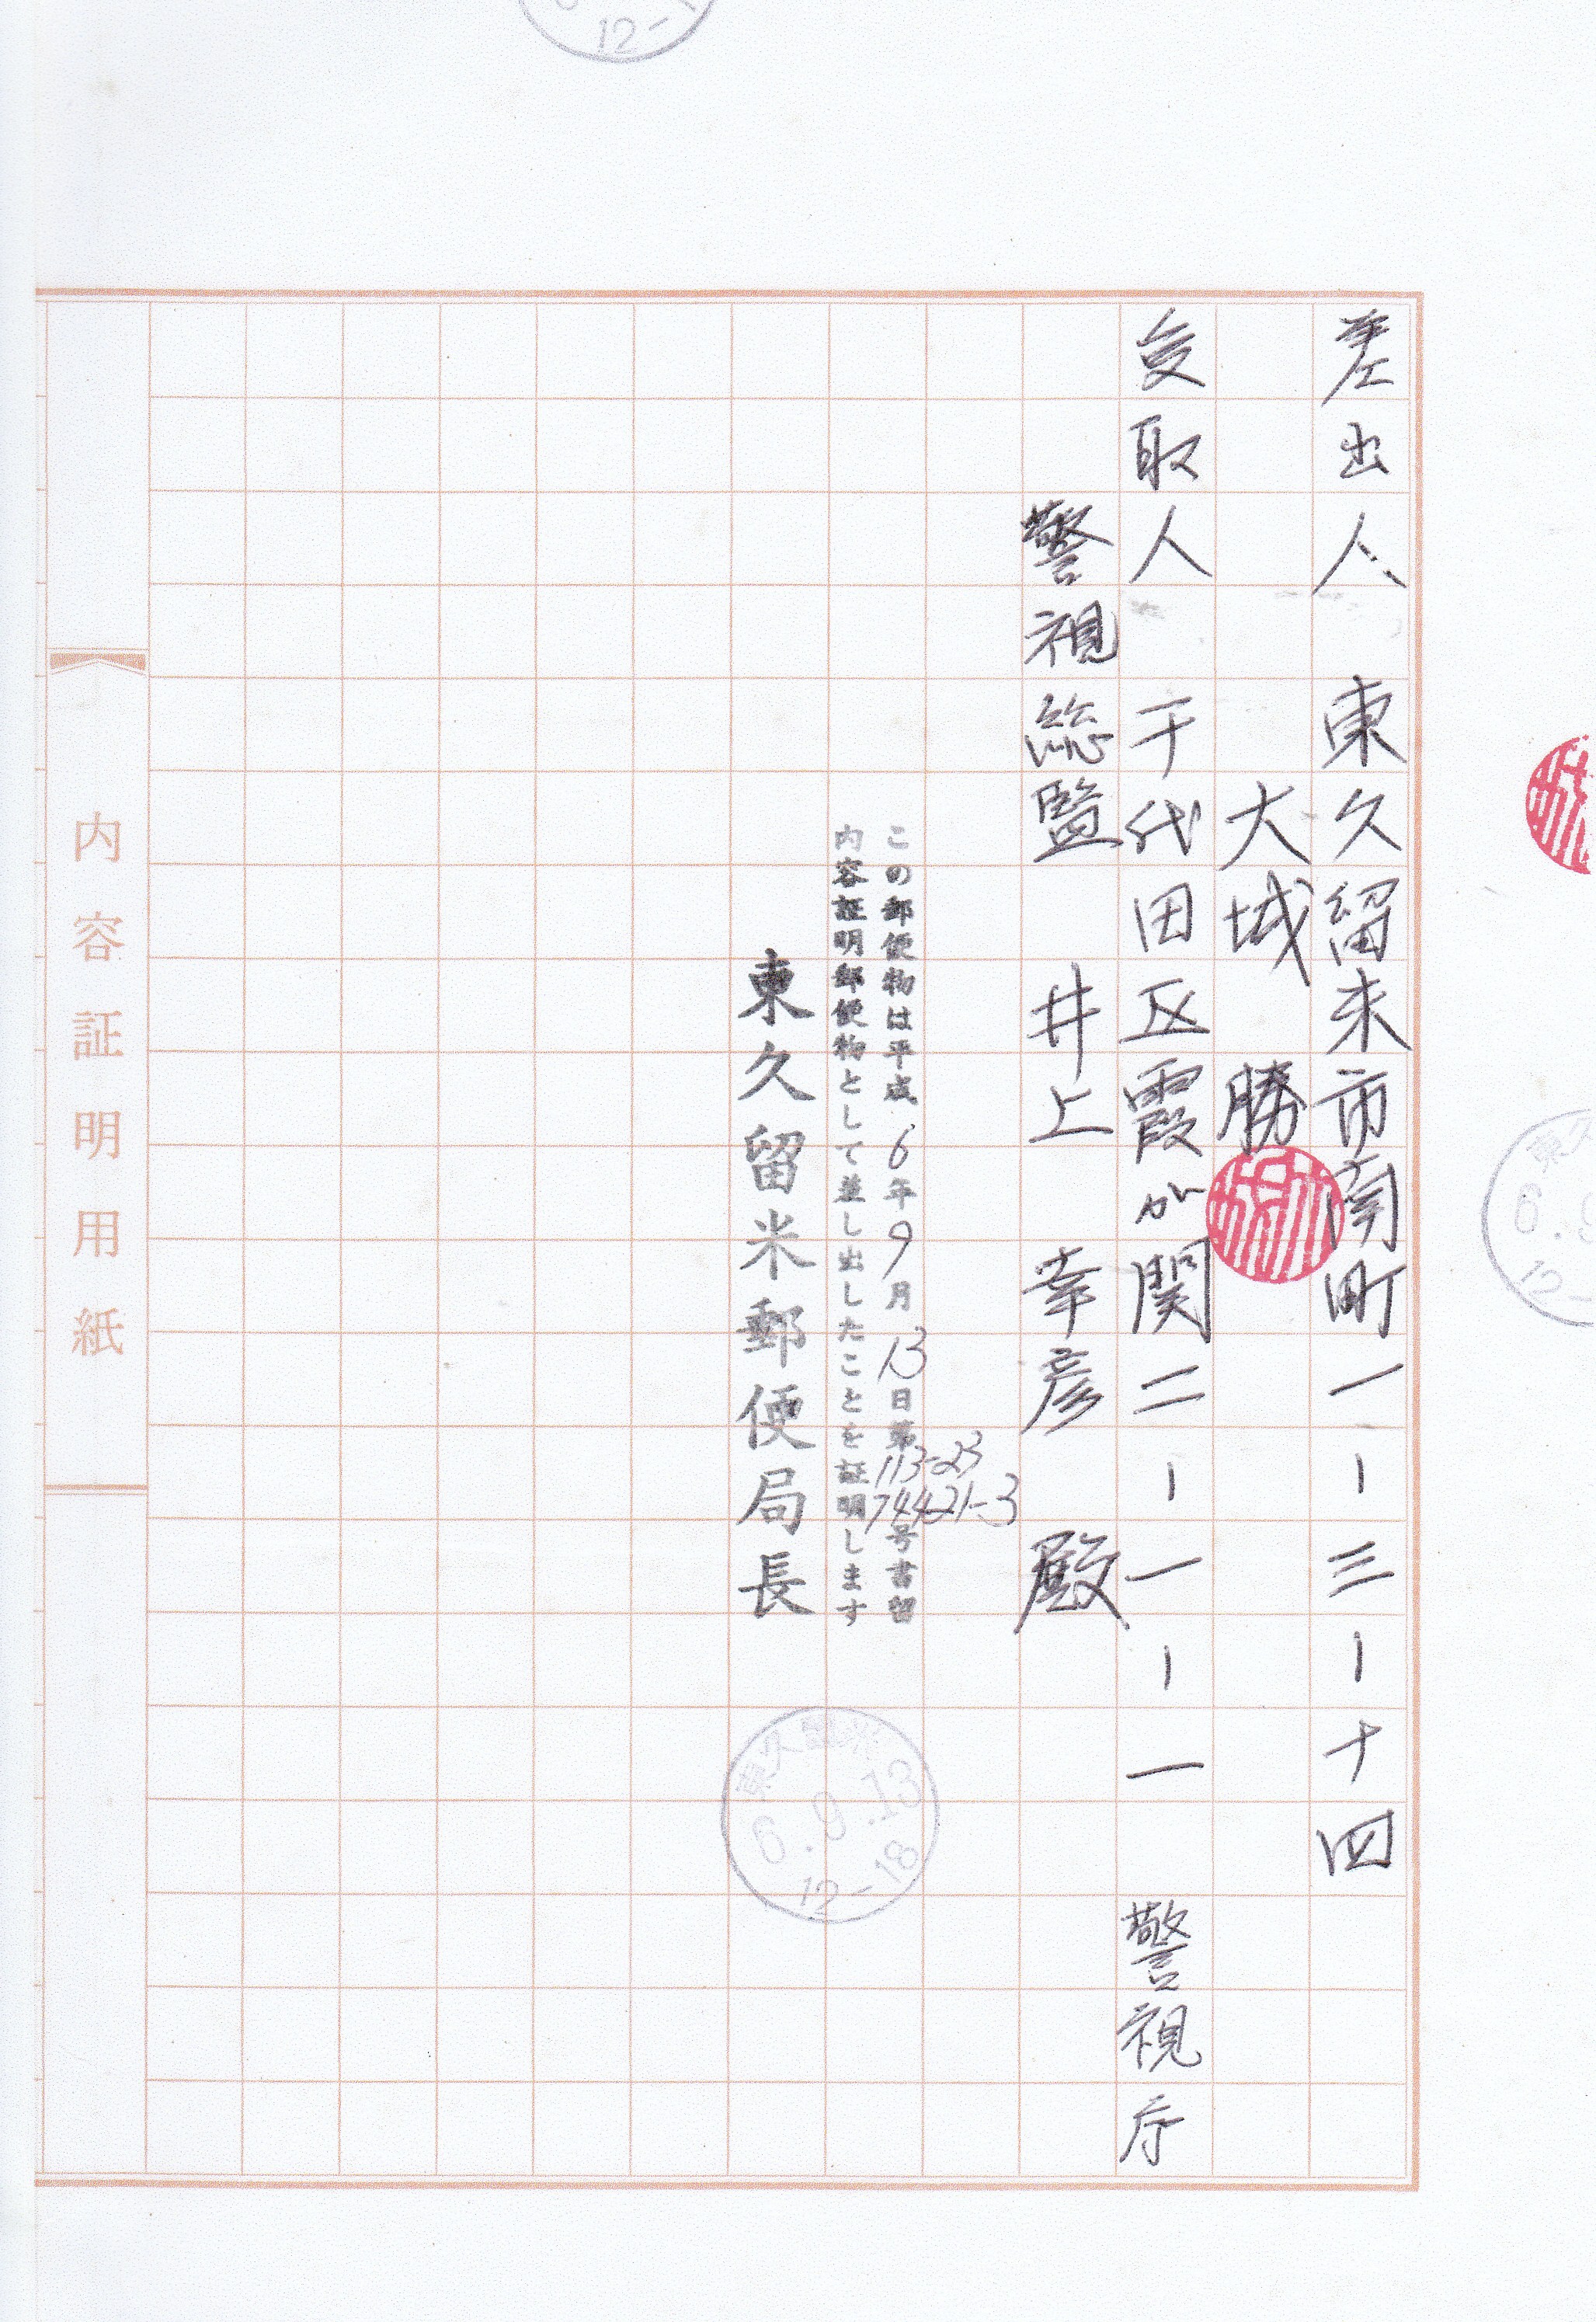 差出人 東久留米市南町一ー三ー十四
大城 勝
受取人 千代田区霞が関二ー一ー一 警視庁
警視総監 井上 幸彦 殿
この郵便物は平成6年9月13日第113-23 74421-3号書留
内容証明郵便物として差し出したことを証明します
東久留米郵便局長
東久留米
6.9.13
12-18
内容証明用紙
12-1
東久
6.9
12-